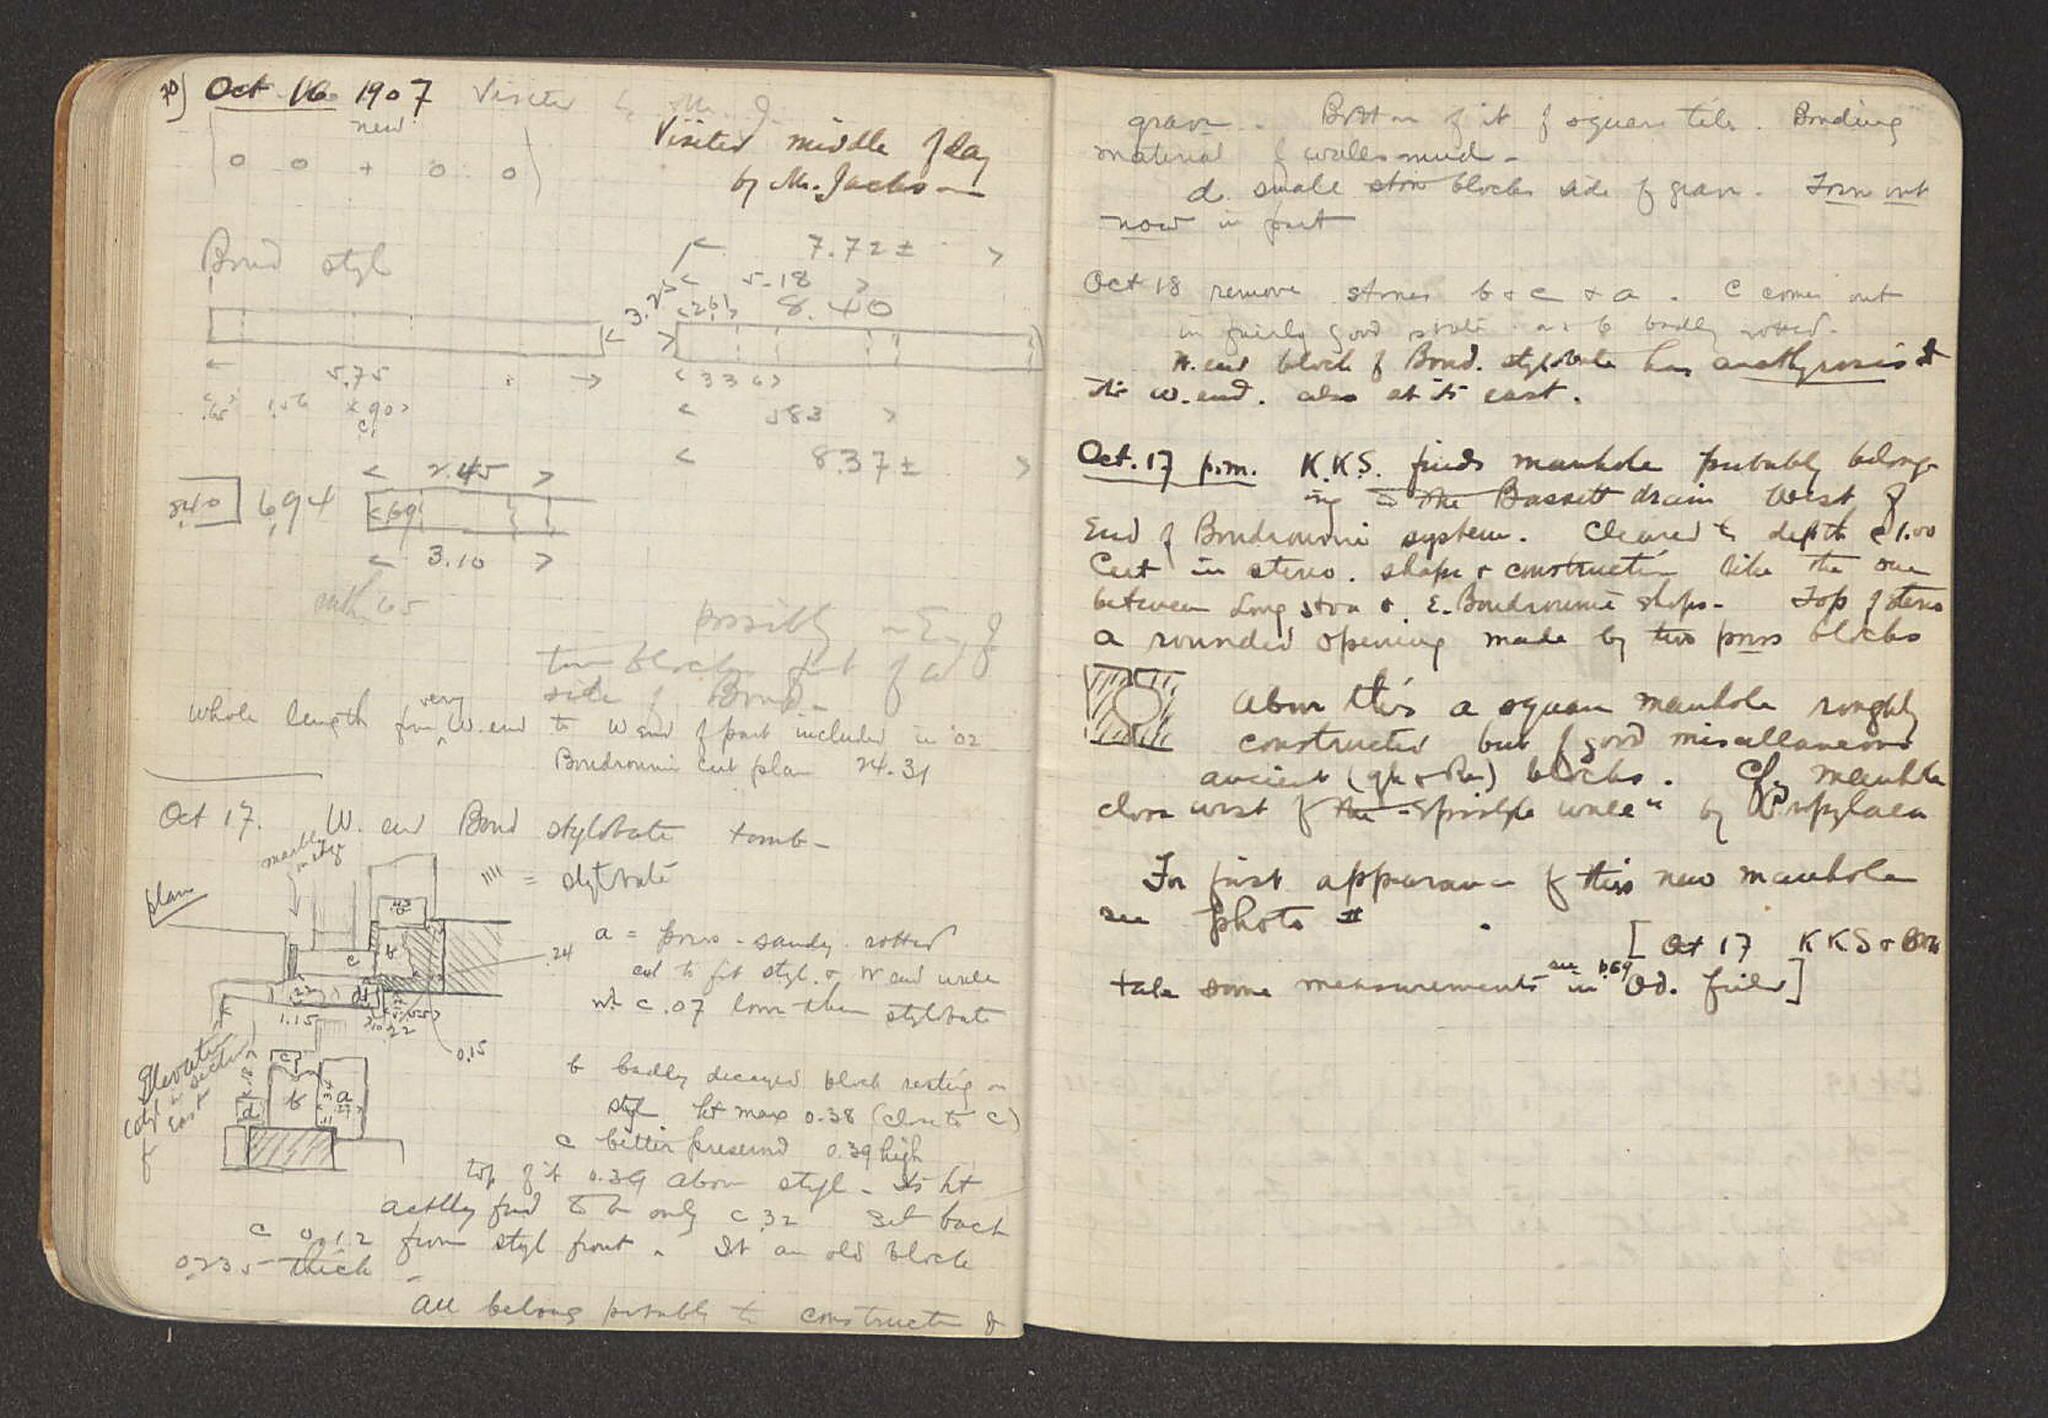 70) Oct 16 1907 Visited by Mr. J.
new
o o + o o
Visited middle of day
by Mr. Jackson
Boud styl
7.72 ±
5.18
3.25
.261
8.40
5.75
336
.65 1.56 .90
c
583
8.37 ±
2.45
.840
6.94
.69
3.10
65
possibly in E. of
two blocks front of W
side of Boud.
Whole length from very W. end to W end of part included in '02
Boudroumi cut plan 24.31
Oct 17. W. end Boud stylobate tomb -
marble
in edge
= stylobate
plan
.24
a = poros - sandy - rotted
cut to fit styl. & W end wall
c .07 lower than stylobate
1.15
.22
0.15
Elevation
in section
East
b badly decayed block resting on
styl ht max 0.38 (close to c)
c better preserved 0.39 high
top of it 0.39 above styl - Its ht
actlly found to be only c .32 Set back
c 0.12 from styl front. It an old block
0.235 thick
All belong probably to construction of
grave. Bottom of it of square tiles. Bonding
material of walls mud -
d. small stone blocks side of grave. Torn out
now in part
Oct 18 remove stones b & c & a. c comes out
in fairly good state. a & b badly rotted.
W. end block of Boud. stylobate has anathyrosis at
its W. end. also at its east.
Oct. 17 p.m. K.K.S. finds manhole probably belong-
ing to the Bassett drain West of
End of Boudroumi system. Cleared to depth c 1.00
Cut in stereo. shape & construction like the one
between Long stoa & E. Boudroumi shops. Top of stereo
a rounded opening made by two poros blocks
Above this a square manhole roughly
constructed but of good miscellaneous
ancient (gk & Ro) blocks. Cf. manhole
close west of by Propylaea
For first appearance of this new manhole
see photo #
[Oct 17 K K S &
take some measurements in Od. field]
see p. 69